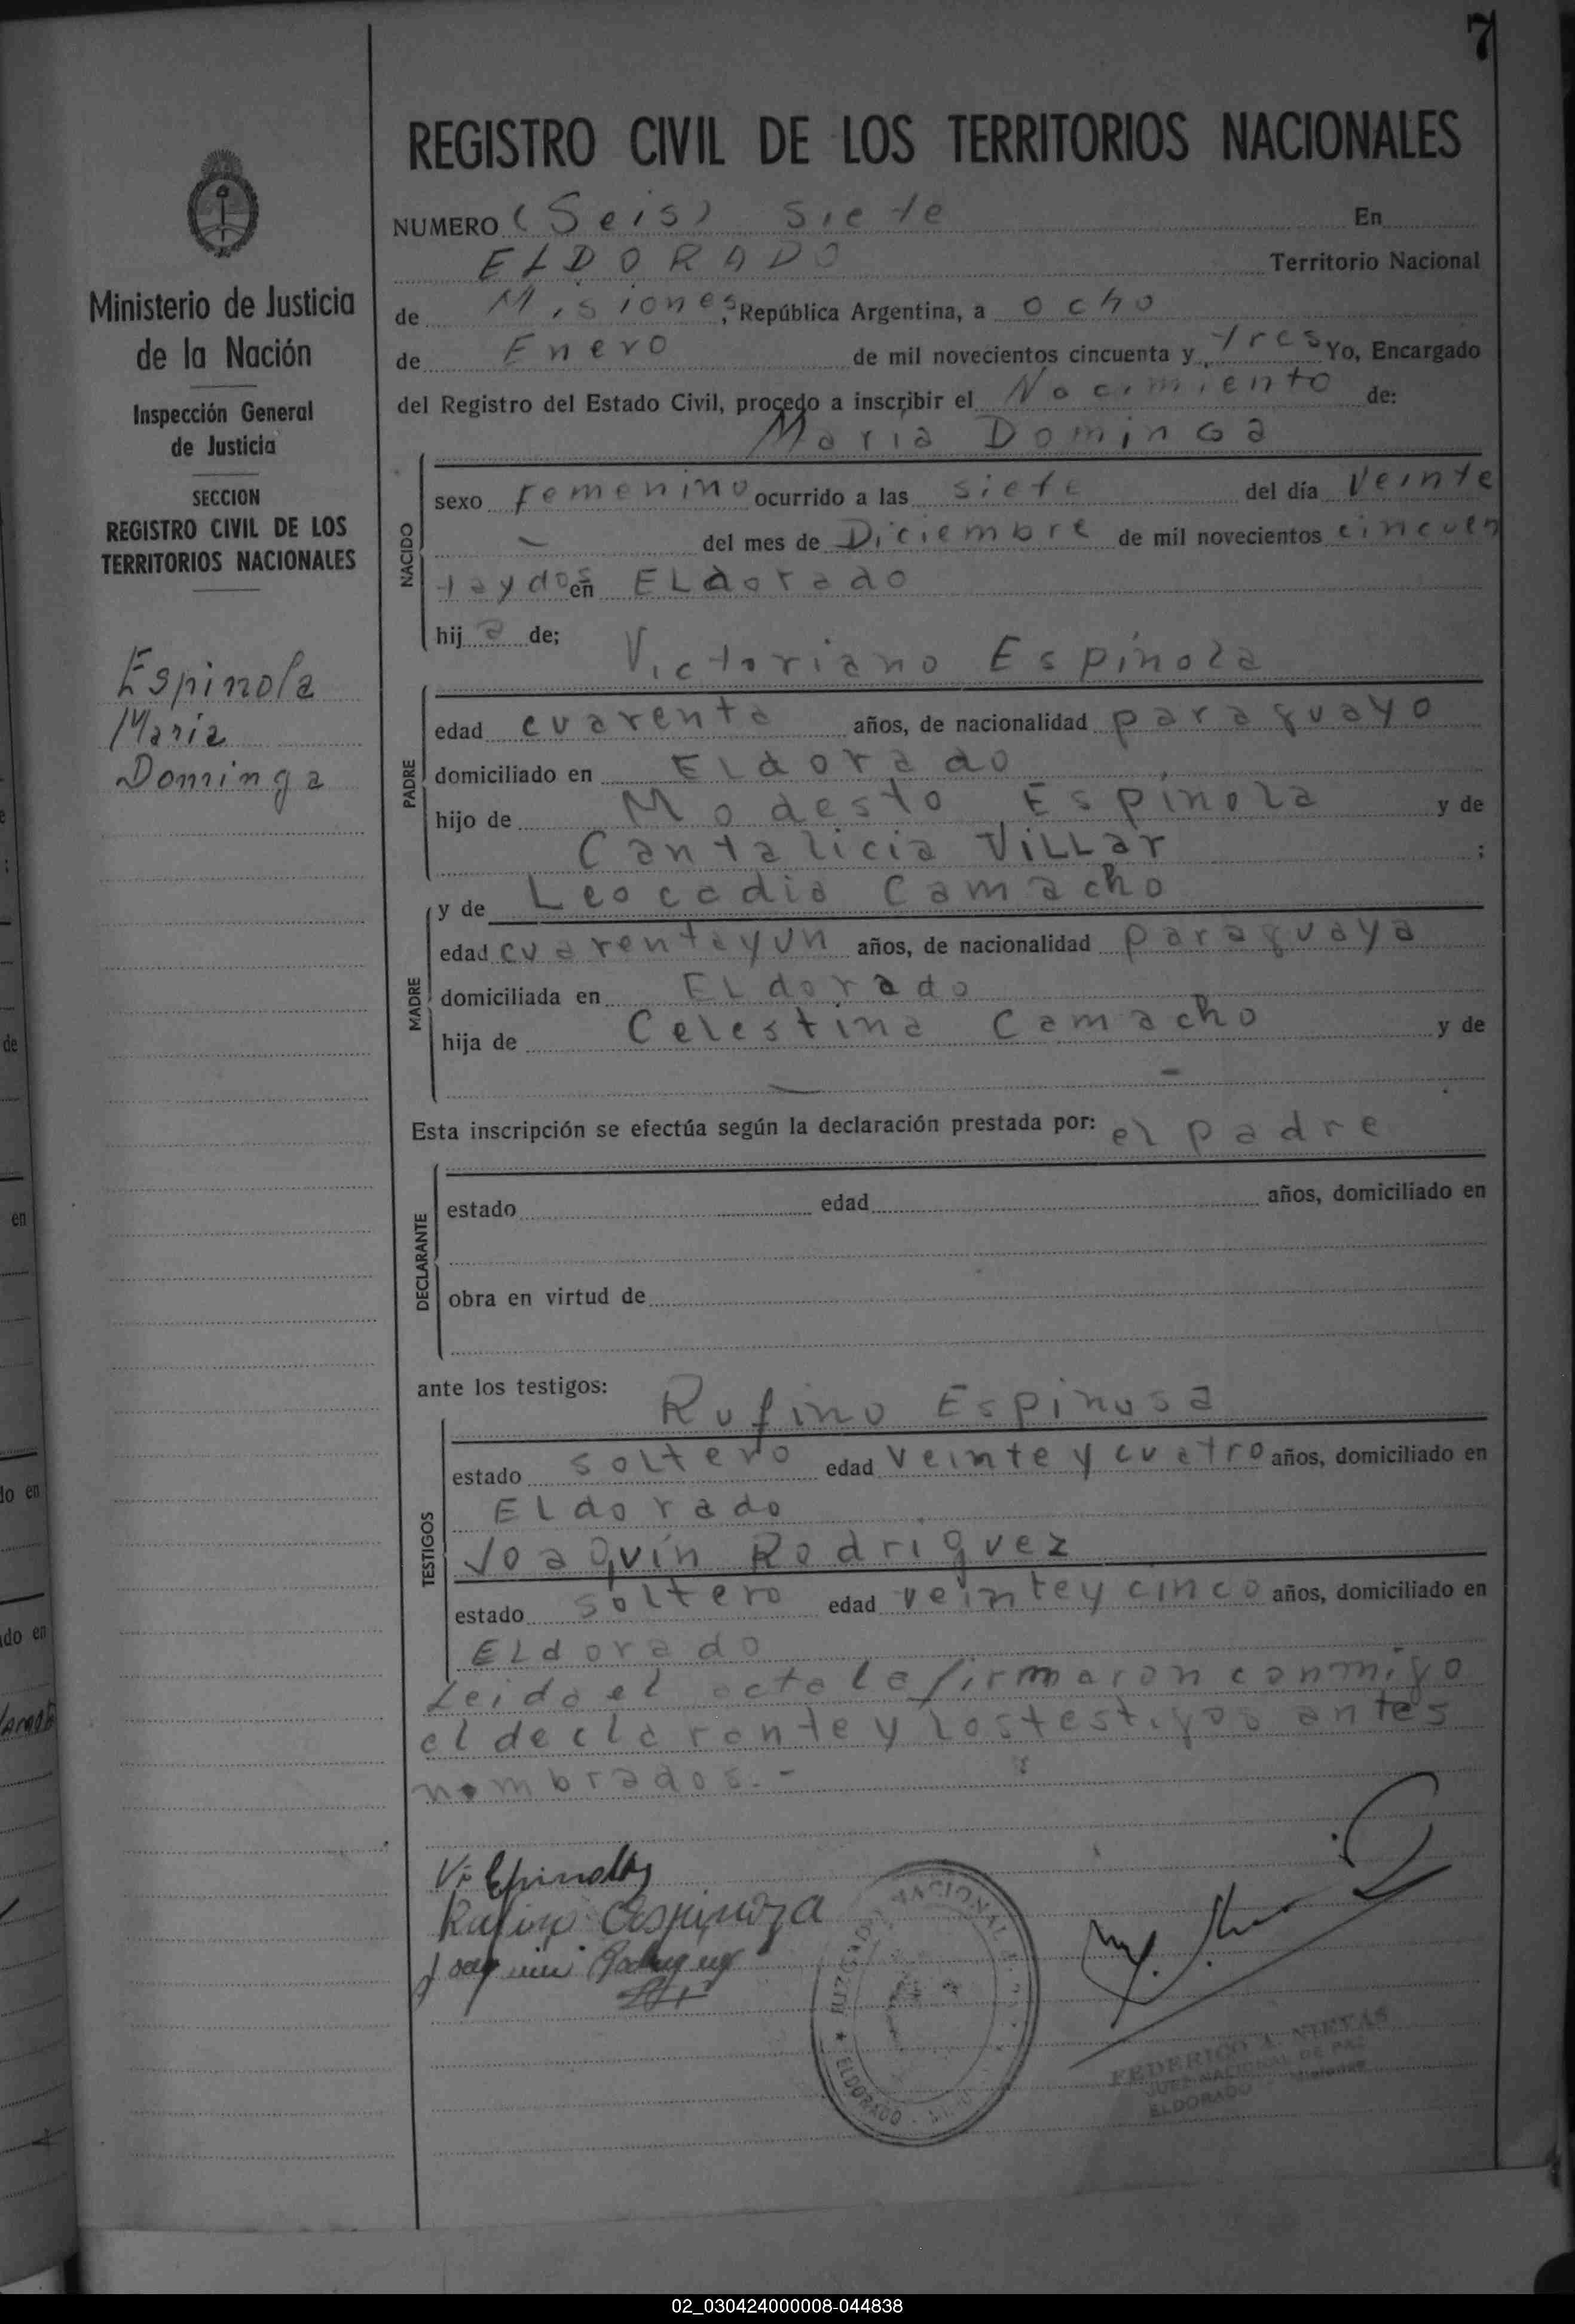 7
REGISTRO CIVIL DE LOS TERRITORIOS NACIONALES
NUMERO (Seis) Siete En
ELDORADO Territorio Nacional
de Misiones, República Argentina, a ocho
de Enero de mil novecientos cincuenta y tres Yo, Encargado
del Registro del Estado Civil, procedo a inscribir el Nacimiento de:
Maria Dominga
NACIDO
sexo femenino ocurrido a las siete del día Veinte
— del mes de Diciembre de mil novecientos cincuen
ta y dos en ELdorado
hij a de; Victoriano Espínola
PADRE
edad cuarenta años, de nacionalidad paraguayo
domiciliado en ELdorado
hijo de Modesto Espínola y de
Cantalicia ViLLar ;
y de Leocadia Camacho
MADRE
edad cuarentayun años, de nacionalidad paraguaya
domiciliada en ELdorado
hija de Celestina Camacho y de
— -
Esta inscripción se efectúa según la declaración prestada por: el padre
DECLARANTE
estado edad años, domiciliado en
obra en virtud de
ante los testigos: Rufino Espinosa
TESTIGOS
estado soltero edad veinte y cuatro años, domiciliado en
ELdorado
Joaquín Rodriguez
estado soltero edad veintey cinco años, domiciliado en
ELdorado
Leido el acta la firmaron conmigo
el declarante y los testigos antes
nombrados.-
Ministerio de Justicia
de la Nación
Inspección General
de Justicia
SECCION
REGISTRO CIVIL DE LOS
TERRITORIOS NACIONALES
Espinola
Maria
Dominga
V. Espinola
Rufino Espinoza
Joaquin Rodriguez
NACIONAL
ELDORADO
FEDERICO A. NIETAS
JUEZ NACIONAL DE PAZ
ELDORADO - Misiones
de
en
do en
do en
02_030424000008-044838